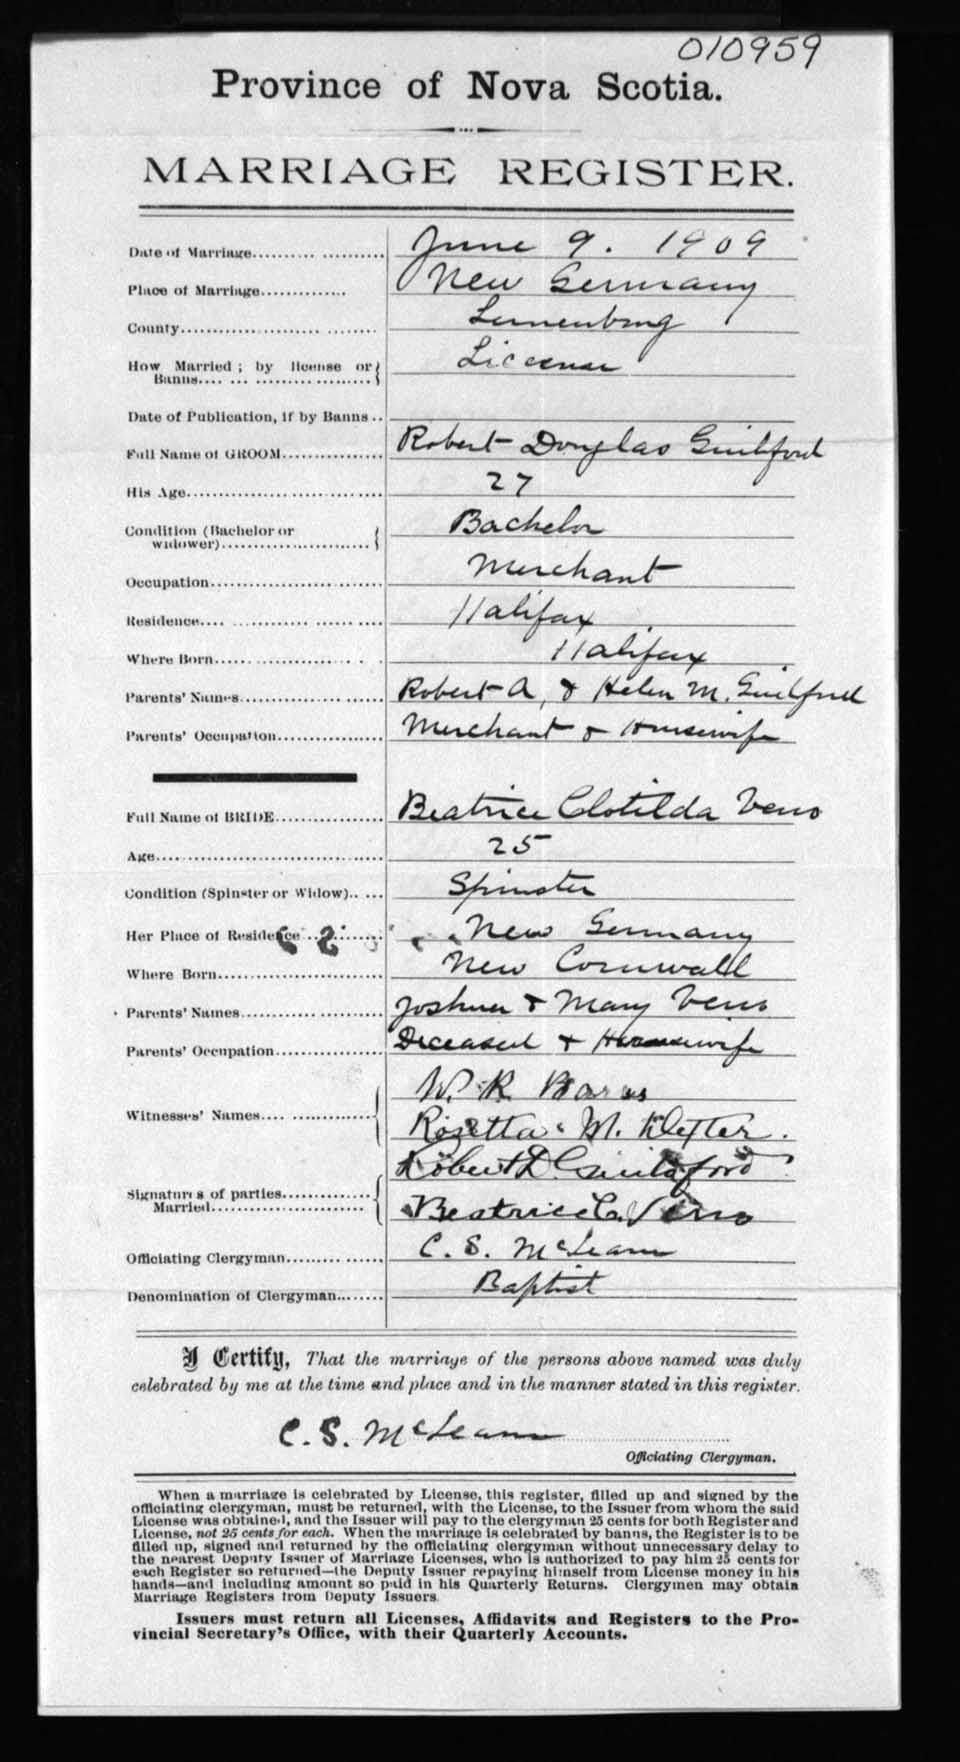 010959
Province of Nova Scotia.
MARRIAGE REGISTER.
Date of Marriage........................ June 9. 1909
Place of Marriage............. New Germany
County............................... Lunenburg
How Married ; by license or Licecense
Banns........................
Date of Publication, if by Banns ..
Full Name of GROOM................ Robert Douglas Guilford
His Age.............................. 27
Condition (Bachelor or Bachelor
widower)........................
Occupation........................... Merchant
Residence............................ Halifax
Where Born........................ Halifax
Parents' Names....................... Robert A, & Helen M. Guilford
Parents' Occupation................. Merchant & Housewife
Full Name of BRIDE................. Beatrice Clotilda Veno
Age.................................. 25
Condition (Spinster or Widow)..... Spinster
Her Place of Residence............ New Germany
Where Born.......................... New Cornwall
Parents' Names....................... Joshua & Mary Veno
Parents' Occupation................. Deceased & Housewife
W. R.
Witnesses' Names................... Rosetta M. Dexter.
Robert D. Guildford
Signatures of parties..............
Married........................ Beatrice C. Veno
Officiating Clergyman............... C. S. McLearn
Denomination of Clergyman........ Baptist
I Certify, That the marriage of the persons above named was duly
celebrated by me at the time and place and in the manner stated in this register.
C. S. McLearn
Officiating Clergyman.
When a marriage is celebrated by License, this register, filled up and signed by the
officiating clergyman, must be returned, with the License, to the Issuer from whom the said
License was obtained, and the Issuer will pay to the clergyman 25 cents for both Register and
License, not 25 cents for each. When the marriage is celebrated by banns, the Register is to be
filled up, signed and returned by the officiating clergyman without unnecessary delay to
the nearest Deputy Issuer of Marriage Licenses, who is authorized to pay him 25 cents for
each Register so returned—the Deputy Issuer repaying himself from License money in his
hands—and including amount so paid in his Quarterly Returns. Clergymen may obtain
Marriage Registers from Deputy Issuers
Issuers must return all Licenses, Affidavits and Registers to the Pro-
vincial Secretary's Office, with their Quarterly Accounts.